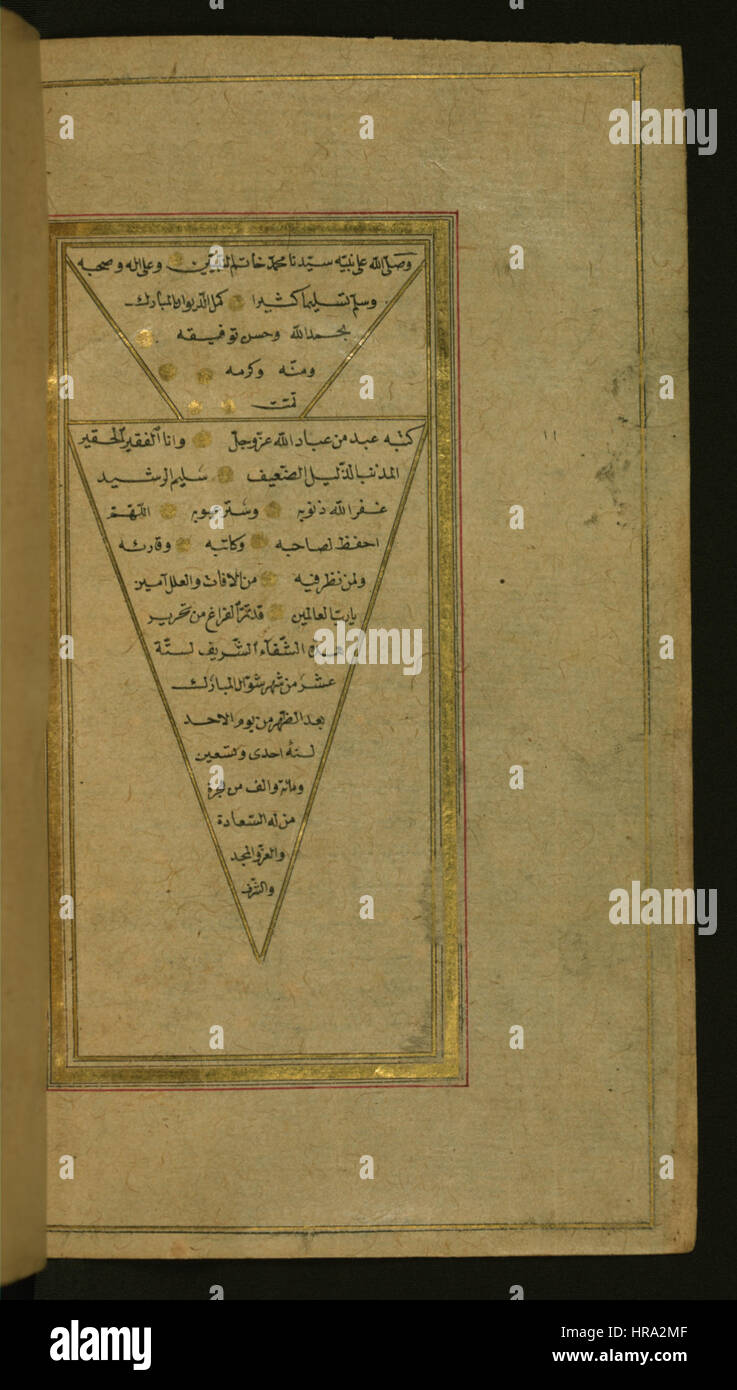 وصلى الله على نبيه سيدنا محمد خاتم النبيين وعلى اله وصحبه
وسلم تسليما كثيرا كمل الديوان المبارك
بحمد الله وحسن توفيقه
ومنه وكرمه
تمت
كتبه عبد من عباد الله عز وجل وانا الفقير الحقير
المذنب الذليل الضعيف سليم الرشيد
غفر الله ذنوبه وستر عيوبه اللهم
احفظ لصاحبه وكاتبه وقارئه
ولمن نظر فيه من الافات والعلل آمين
يا رب العالمين قد تم الفراغ من تحرير
هذه الشفاء الشريف لستة
عشر من شهر شوال المبارك
بعد الظهر من يوم الاحد
لسنة احدى وتسعين
ومائة والف من هجرة
من له السعادة
والعز والمجد
والشرف
١١
a
alamy
alamy
HRA2MF
www.alamy.com